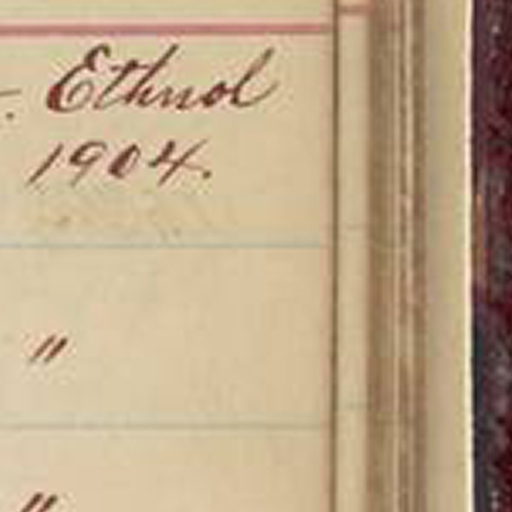 . Ethnol
1904.
"
"